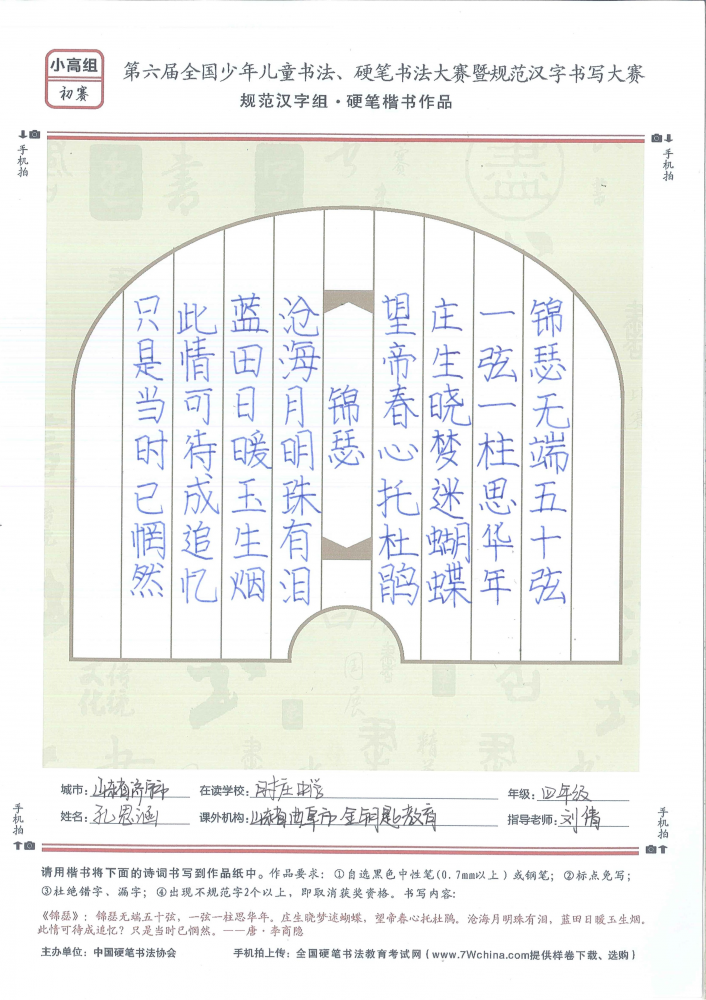 小高组
初赛
第六届全国少年儿童书法、硬笔书法大赛暨规范汉字书写大赛
规范汉字组·硬笔楷书作品
手机拍
手机拍
锦瑟无端五十弦
一弦一柱思华年
庄生晓梦迷蝴蝶
望帝春心托杜鹃
锦瑟
沧海月明珠有泪
蓝田日暖玉生烟
此情可待成追忆
只是当时已惘然
城市：山东省济宁市 在读学校：时庄中学 年级：四年级
姓名：孔思涵 课外机构：山东省曲阜市金钥匙教育 指导老师：刘倩
手机拍
手机拍
请用楷书将下面的诗词书写到作品纸中。作品要求：①自选黑色中性笔(0.7mm以上)或钢笔；②标点免写；
③杜绝错字、漏字；④出现不规范字2个以上，即取消获奖资格。书写内容：
《锦瑟》：锦瑟无端五十弦，一弦一柱思华年。庄生晓梦迷蝴蝶，望帝春心托杜鹃。沧海月明珠有泪，蓝田日暖玉生烟。
此情可待成追忆？只是当时已惘然。——唐·李商隐
主办单位：中国硬笔书法协会 手机拍上传：全国硬笔书法教育考试网(www.7Wchina.com提供样卷下载、选购)